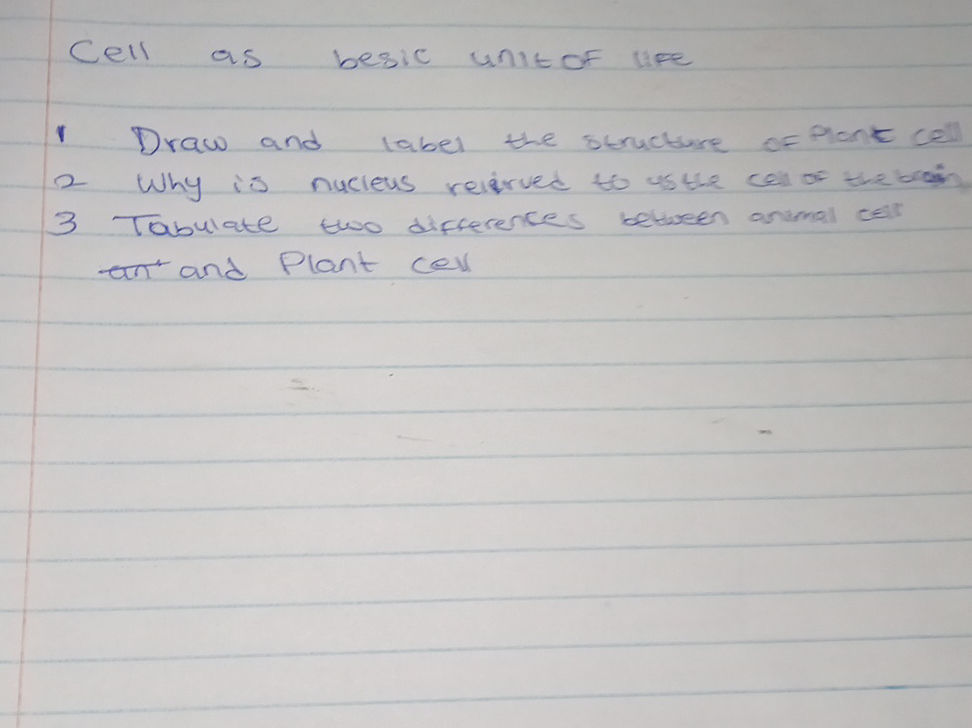 Cell as besic unit of life
1 Draw and label the structure of Plant cell
2 Why is nucleus to as the cell of the brain
3 Tabulate two differences between animal cell
and Plant cell